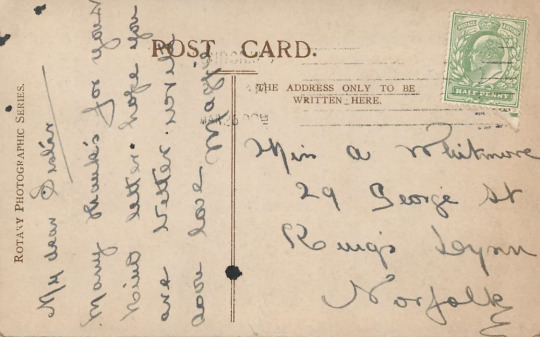 POST CARD.
THE ADDRESS ONLY TO BE
WRITTEN HERE.
ROTARY PHOTOGRAPHIC SERIES.
HALFPENNY
My dear Sister
Many thanks for your
kind letter. hope you
are better. will
love Magie
Miss A Whitmore
29 George St
King's Lynn
Norfolk